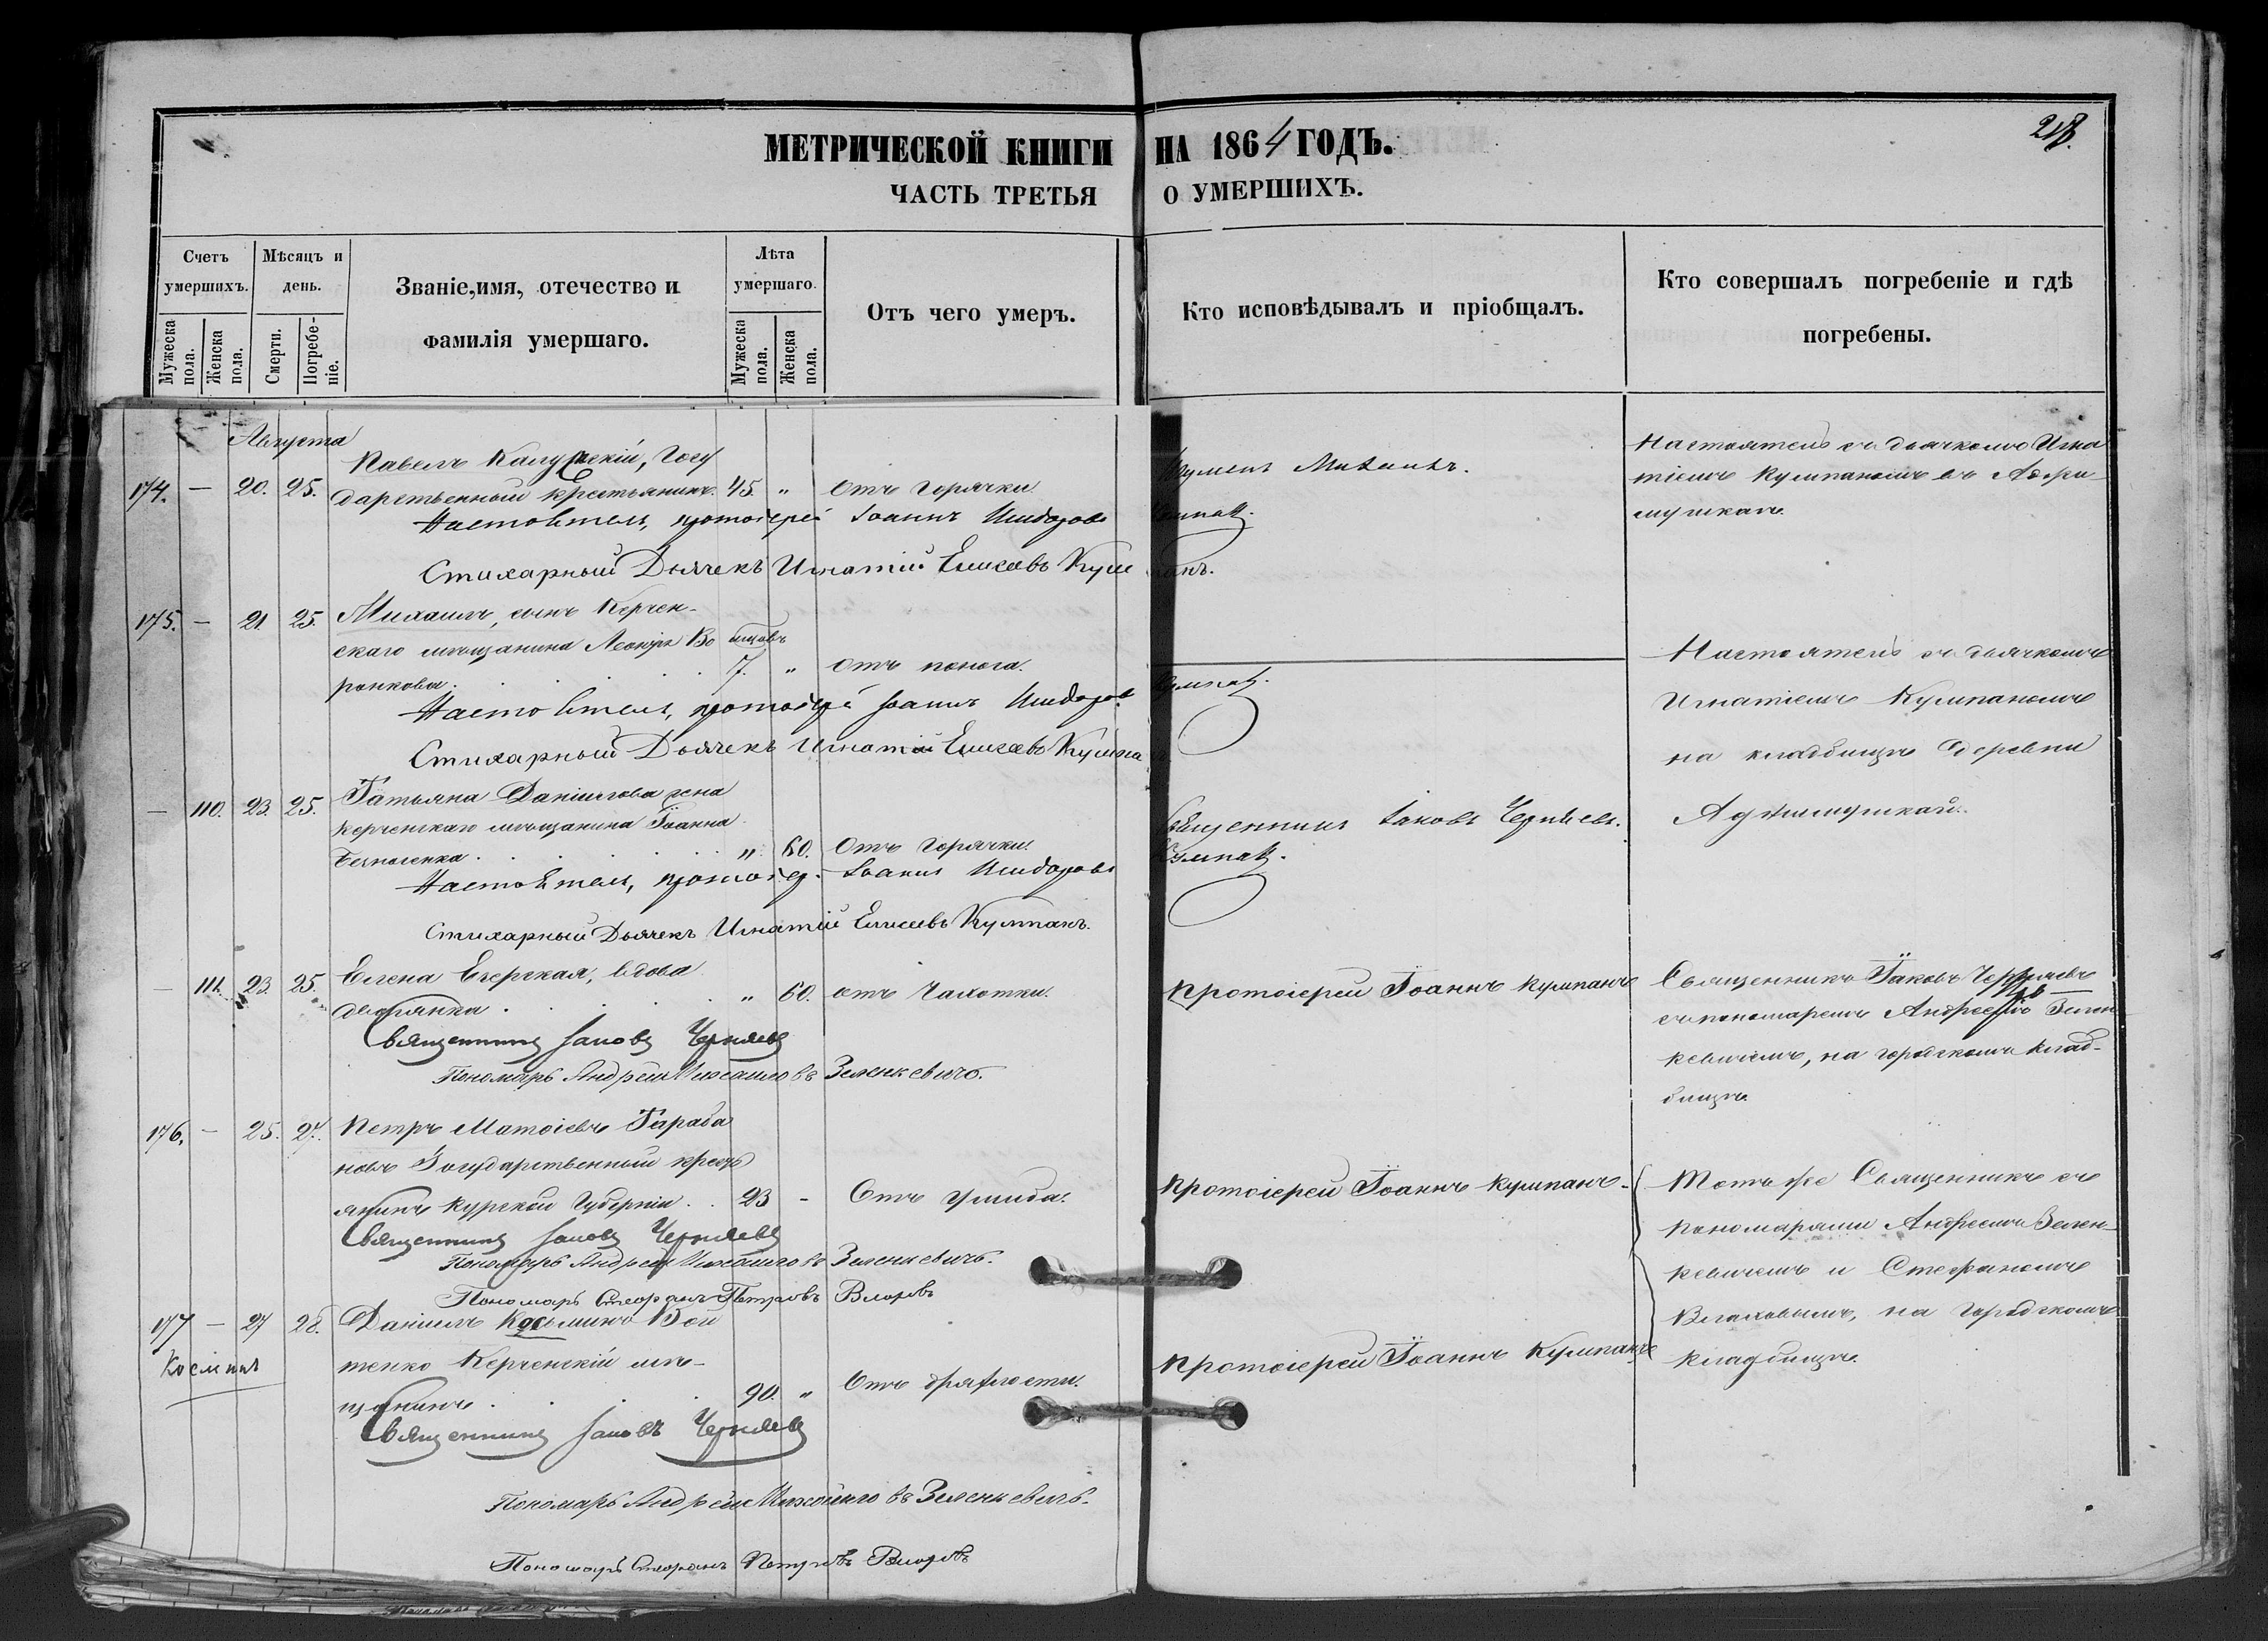 МЕТРИЧЕСКОЙ КНИГИ НА 1864 ГОДЪ.
ЧАСТЬ ТРЕТЬЯ О УМЕРШИХЪ.
Счетъ умершихъ.
Мужеска пола.
Женска пола.
Мѣсяцъ и день.
Смерти.
Погребе-ніе.
Званіе,имя, отечество и
фамилія умершаго.
Лѣта умершаго.
Мужеска пола.
Женска пола.
Отъ чего умеръ.
Кто исповѣдывалъ и пріобщалъ.
Кто совершалъ погребеніе и гдѣ
погребены.
Августа
Павелъ Госу
174. — 20. 25. дарственный крестьянинъ. 45. " Отъ горячки.
Настоятель, протоіерей Іоаннъ Исидоровъ
Стихарный Дьячекъ Игнатій Елисеевъ Кумпанъ.
Настоятель съ дьячкомъ Игна
тіемъ Кумпаномъ въ Аджи-
мушкаѣ.
175. — 21 25. Михаилъ, сынъ Керчен-
скаго мѣщанина Во
ронкова. 7. " отъ поноса.
Настоятель, протоіерей Іоаннъ Исидоровъ Кумпанъ.
Стихарный Дьячекъ Игнатій Елисеевъ Кумпа
Настоятель съ дьячкомъ
Игнатіемъ Кумпаномъ
на кладбищѣ деревни
Аджимушкай.
— 110. 23. 25. Татьяна Даніилова жена
Керченскаго мѣщанина Іоанна
" 60. Отъ горячки.
Священникъ Іаковъ Черняевъ.
Настоятель, протоіер. Іоаннъ Исидоровъ Кумпанъ.
Стихарный Дьячекъ Игнатій Елисеевъ Кумпанъ.
— 111. 23. 25. Елена Езерская, вдова
дворянка. " 60. отъ чахотки.
Протоіерей Іоаннъ Кумпанъ
Священникъ Іаковъ Черняевъ
съ пономаремъ Андреемъ Зелен
кевичемъ, на городскомъ клад-
бищѣ.
Священникъ Іаковъ Черняевъ
Пономарь Андрей Михайловъ Зеленкевичъ.
176. — 25. 27. Петръ Гараба
новъ Государственный кресть
янинъ Курской Губерніи. 23 -
Протоіерей Іоаннъ Кумпанъ.
Священникъ Іаковъ Черняевъ
Пономарь Андрей Михайловъ Зеленкевичъ.
Пономарь Стефанъ Петровъ
Тотъ же Священникъ съ
пономарями Андреемъ Зелен-
кевичемъ и Стефаномъ
на городскомъ
кладбищѣ.
177 — 27 28. Даніилъ Косьминъ Бой
Косминъ
тенко Керченскій мѣ-
щанинъ. 90. " Отъ дряхлости.
Протоіерей Іоаннъ Кумпанъ
Священникъ Іаковъ Черняевъ
Пономарь Андрей Михайловъ Зеленкевичъ.
Пономарь Стефанъ Петровъ